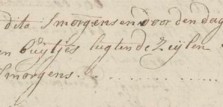 dito Smorgens en voor den dag
en buijtjes legten de zeijlen
Smorgens.